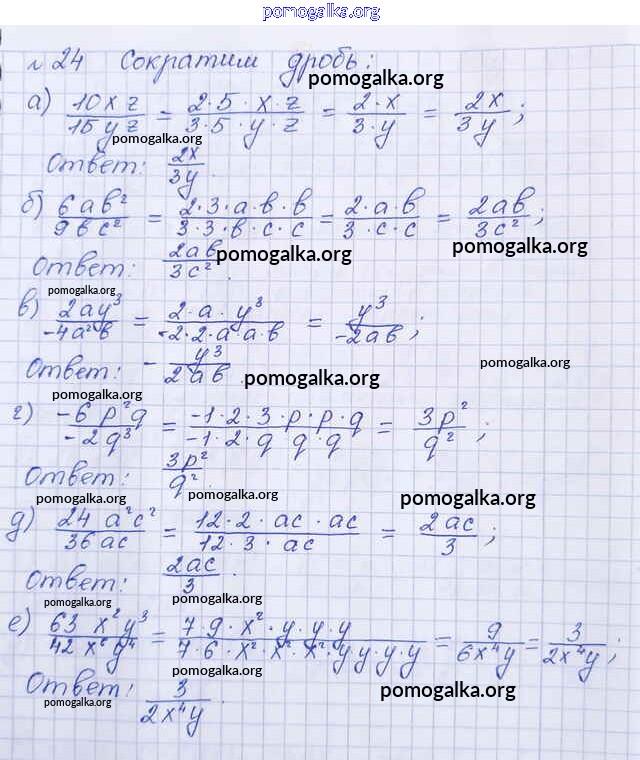 pomogalka.org
№ 24 Сократим дробь:
pomogalka.org
а) 10xz/15yz = 2·5·x·z/3·5·y·z = 2·x/3·y = 2x/3y;
pomogalka.org
Ответ: 2x/3y.
б) 6ab²/9bc² = 2·3·a·b·b/3·3·b·c·c = 2·a·b/3·c·c = 2ab/3c²;
pomogalka.org pomogalka.org
Ответ: 2ab/3c².
pomogalka.org
в) 2ay³/-4a²b = 2·a·y³/-2·2·a·a·b = y³/-2ab;
pomogalka.org
Ответ: - y³/2ab.
pomogalka.org
pomogalka.org
г) -6p²q/-2q³ = -1·2·3·p·p·q/-1·2·q q·q = 3p²/q²;
Ответ: 3p²/q².
pomogalka.org pomogalka.org pomogalka.org
д) 24a²c²/36ac = 12·2·ac·ac/12·3·ac = 2ac/3;
Ответ: 2ac/3.
pomogalka.org pomogalka.org pomogalka.org
е) 63x²y³/42x⁶y⁴ = 7·9·x²·y·y·y/7·6·x²·x²·x²·y·y·y·y = 9/6x⁴y = 3/2x⁴y;
pomogalka.org
Ответ: 3/2x⁴y.
pomogalka.org
pomogalka.org